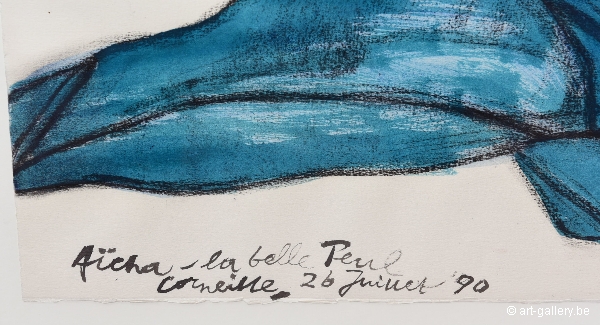 Aïcha - la belle Peul
Corneille, 26 Juillet '90
© art-gallery.be